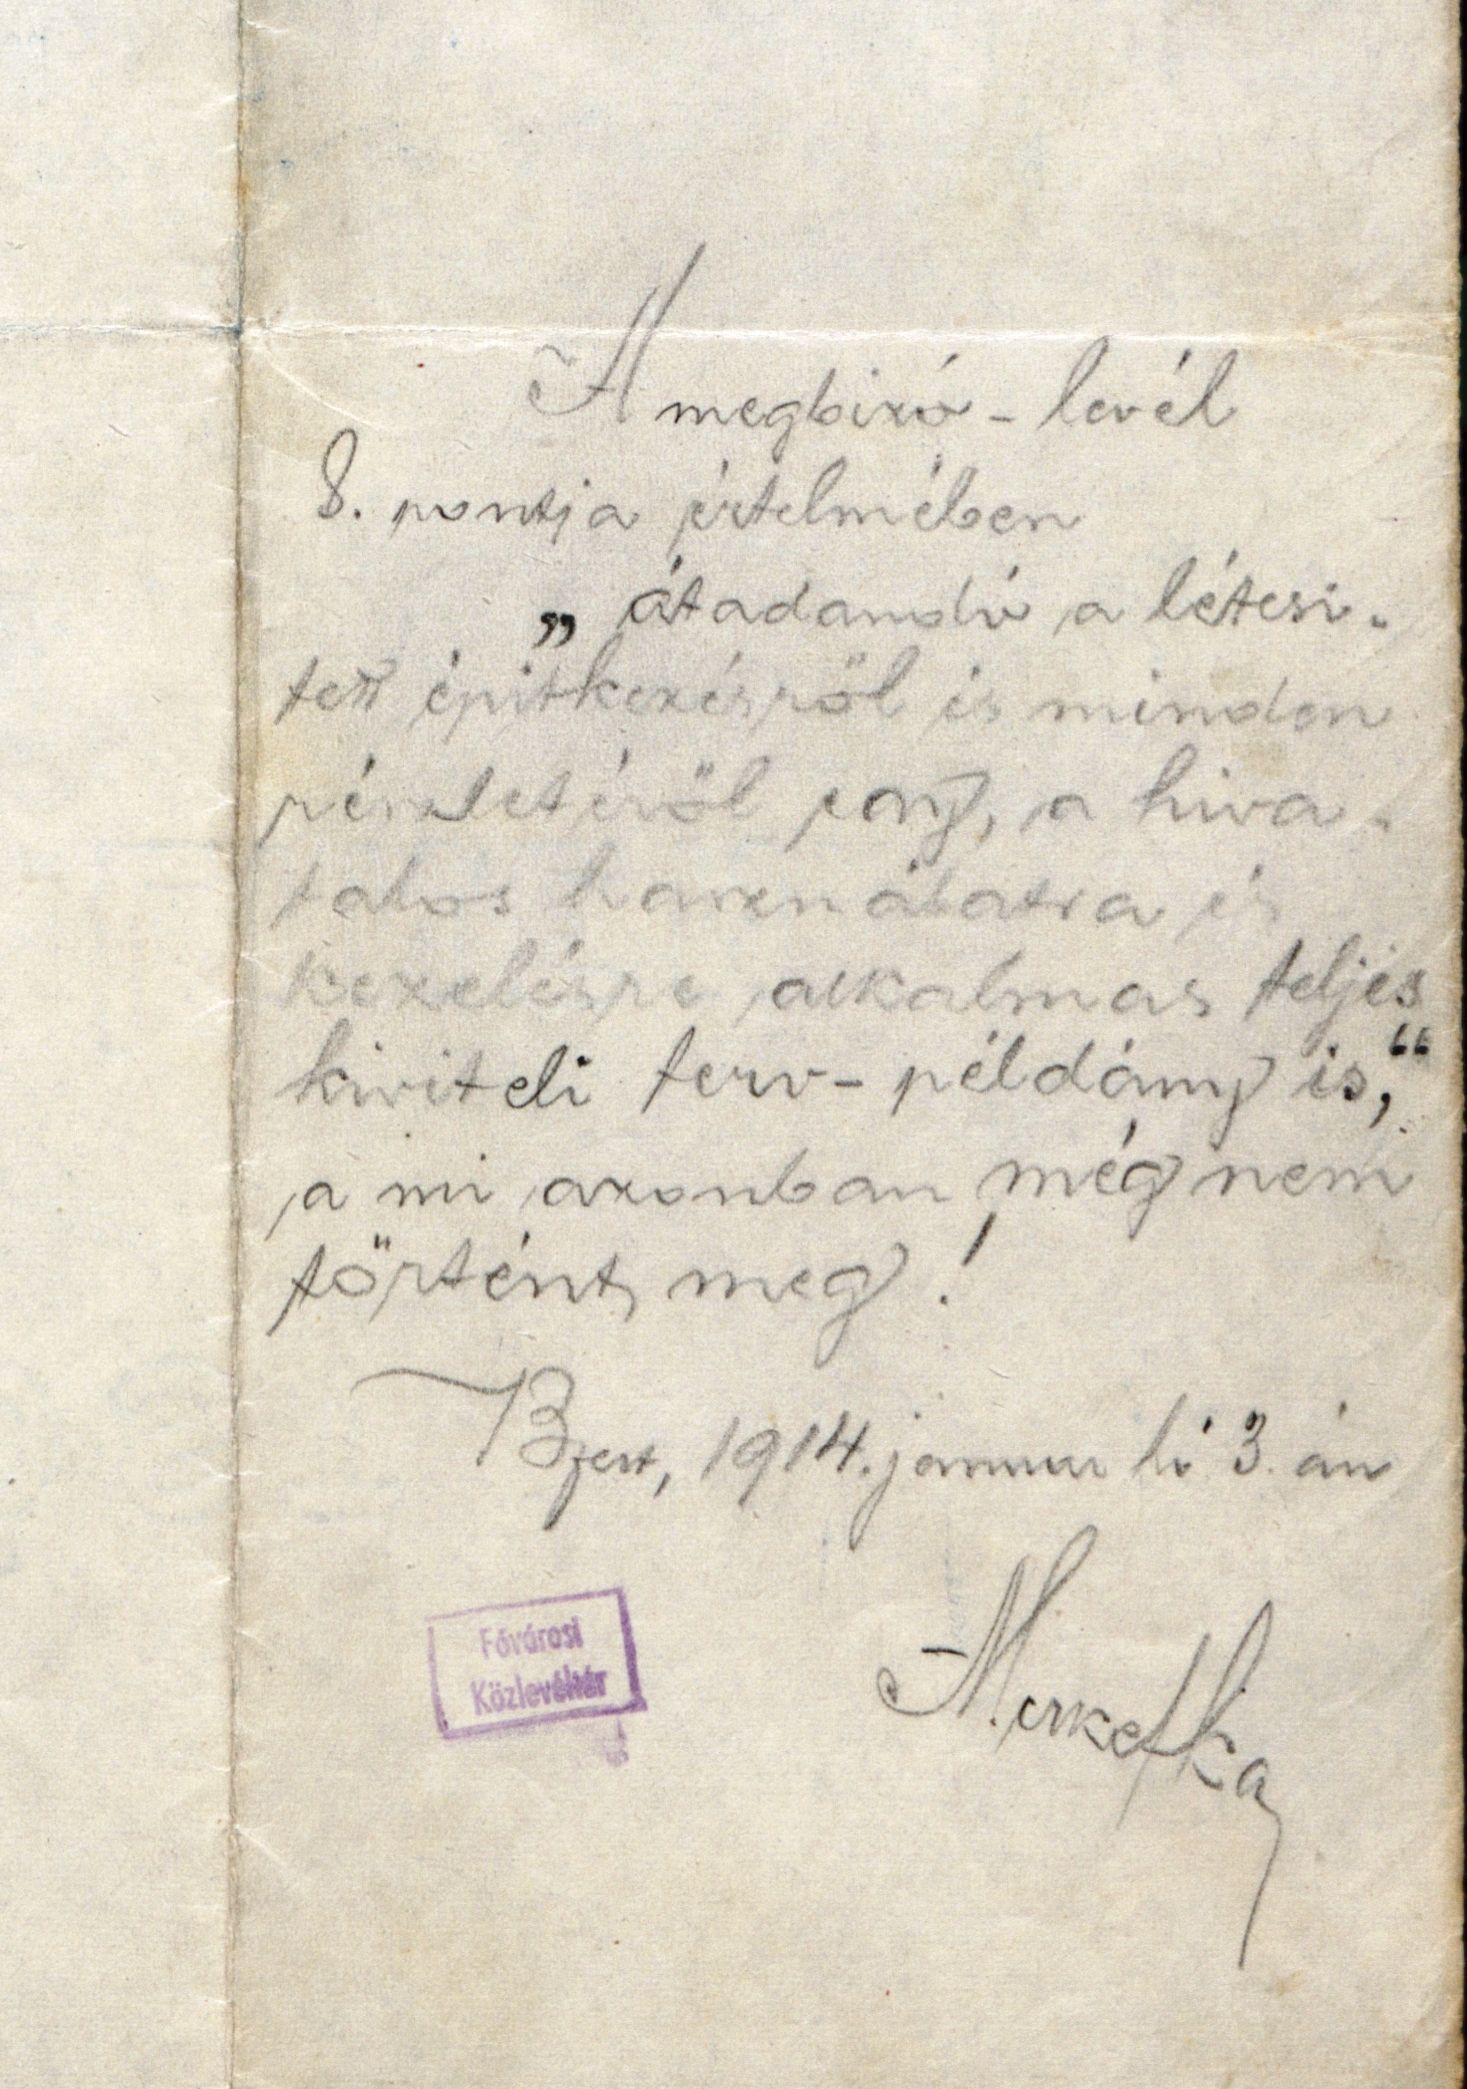 A megbizó-levél
8. pontja értelmében
„átadandó a létesi-
tett épitkezésről is minden
részletéről egy, a hiva-
talos használatra és
kezelésre alkalmas teljes
kiviteli terv-példány is,“
a mi azonban még nem
történt meg!
Bpest, 1914. január hó 3.án
Fővárosi
Közlevéltár